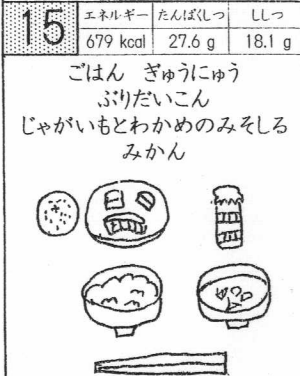 15 エネルギー たんぱくしつ ししつ
679 kcal 27.6 g 18.1 g
ごはん ぎゅうにゅう
ぶりだいこん
じゃがいもとわかめのみそしる
みかん